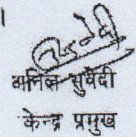 ।
अनिल सुवेदी
केन्द्र प्रमुख